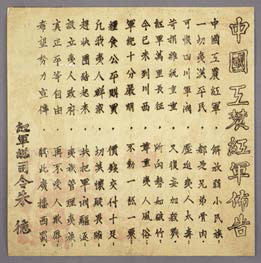 中國工農紅軍佈告
中國工農紅軍,解放弱小民族
一切夷漢平民,都是兄弟骨肉
可恨四川軍閥,壓迫夷人太毒
苛捐雜稅重重,又復妄加殺戮
紅軍萬里長征,所向勢如破竹
今已來到川西,尊重夷人風俗
軍紀十分嚴明,不動一絲一粟
糧食公平購買,價錢交付十足
凡我夷人群眾,切莫懷疑畏縮
趕快團結起來,共把軍閥驅逐
設立夷人政府,夷族管理夷族
真正平等自由,再不受人欺辱
希望努力宣傳,將此廣播西蜀
紅軍總司令朱德